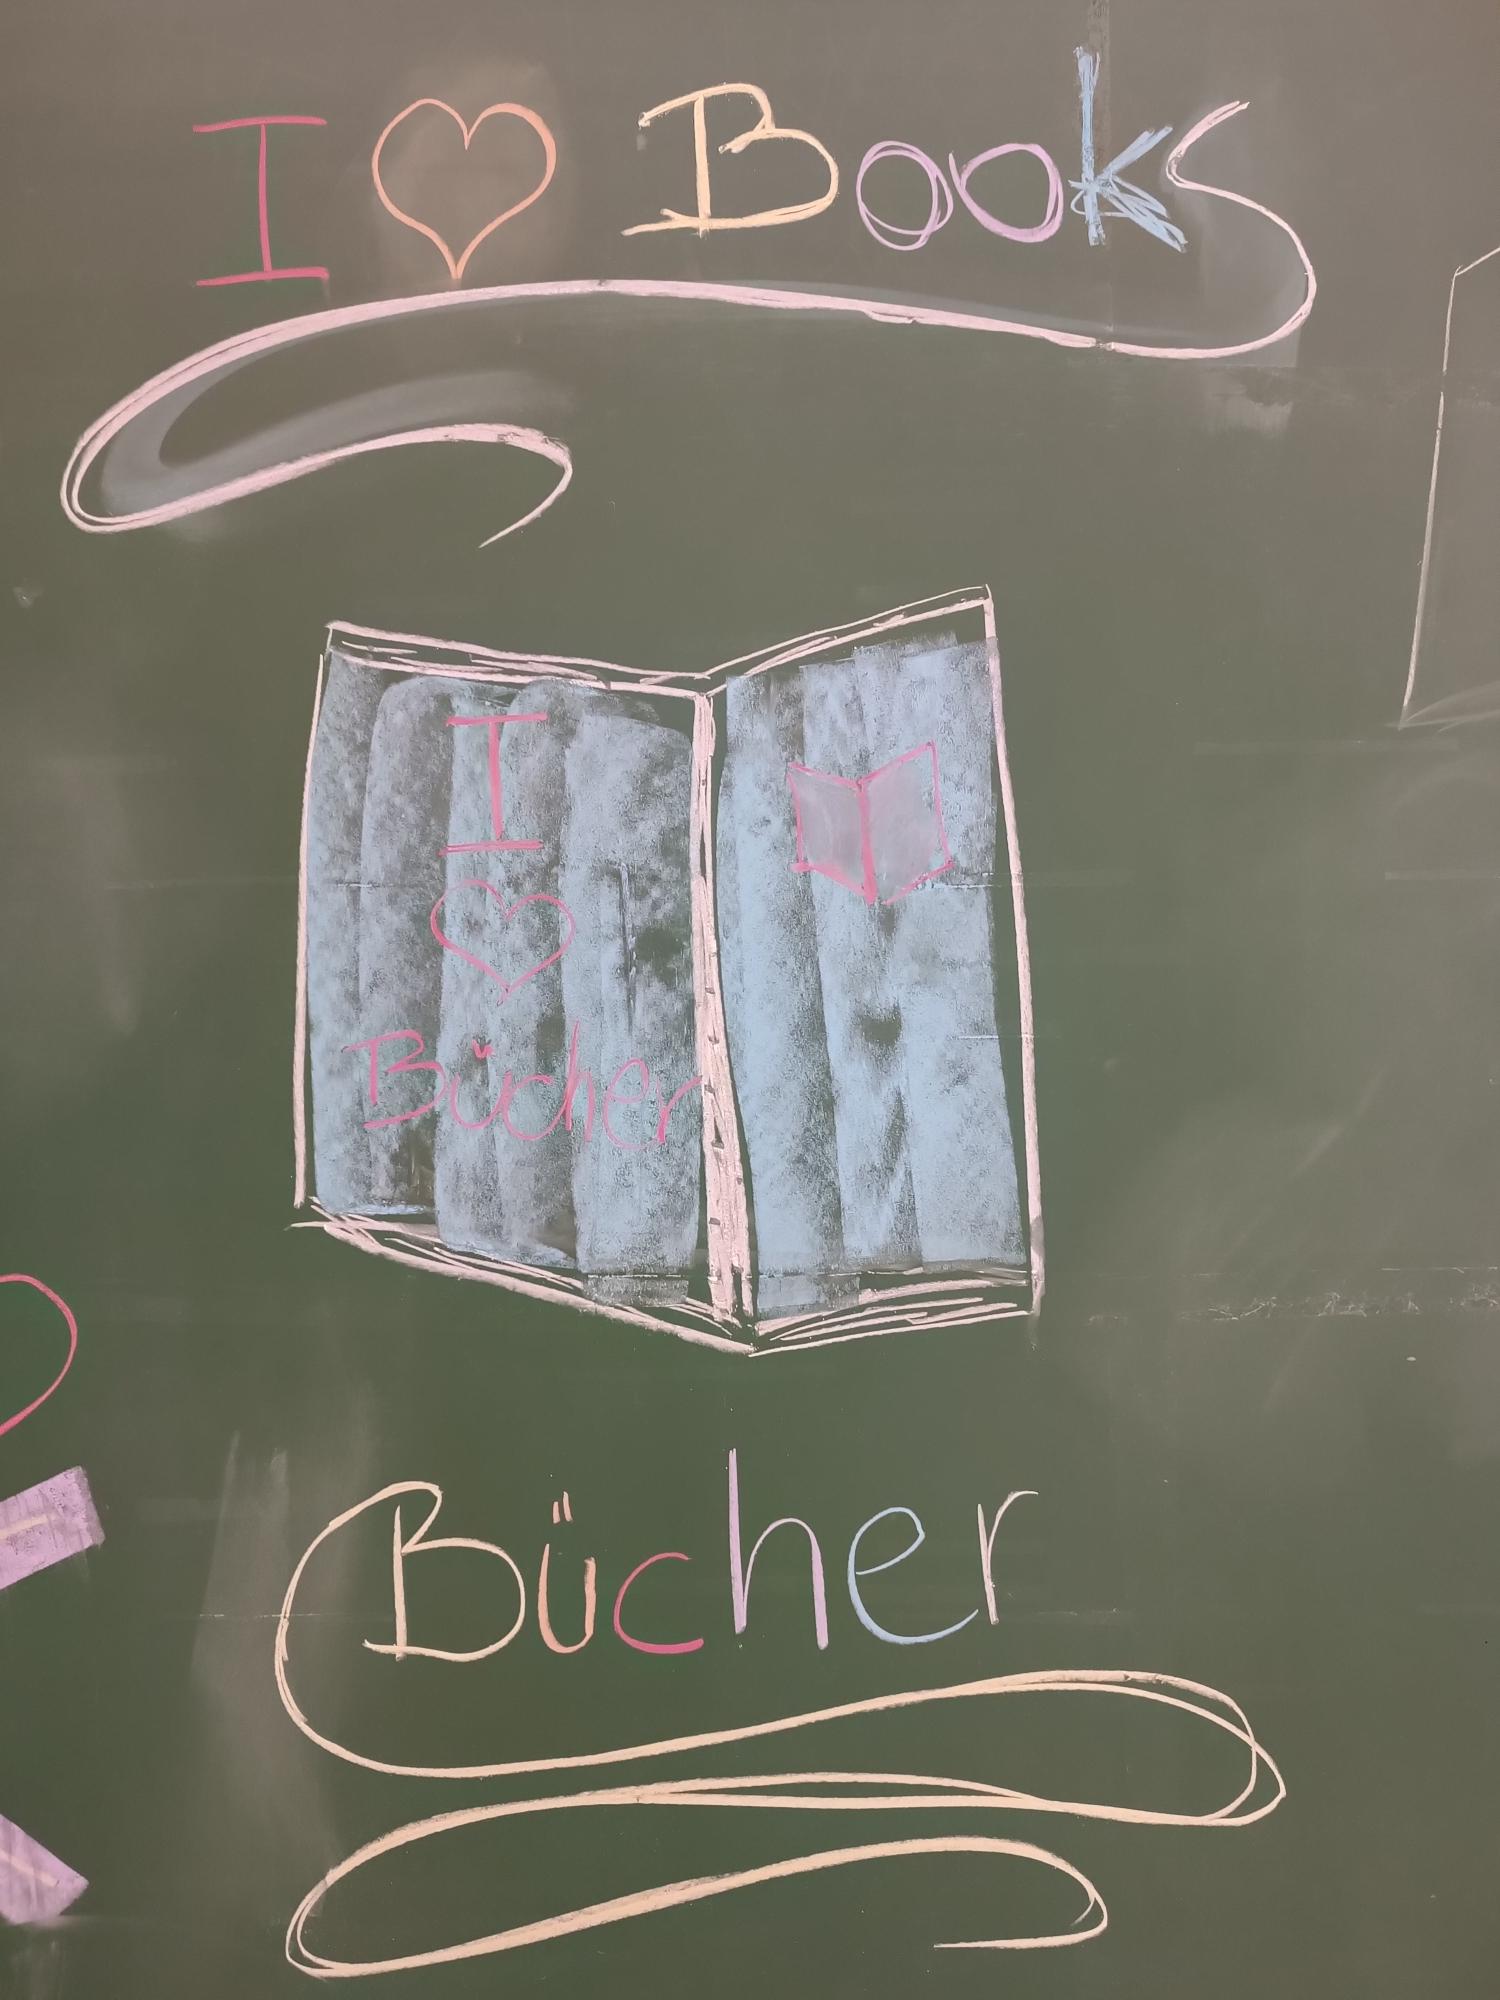 I ♡ Books
I
♡
Bücher
Bücher